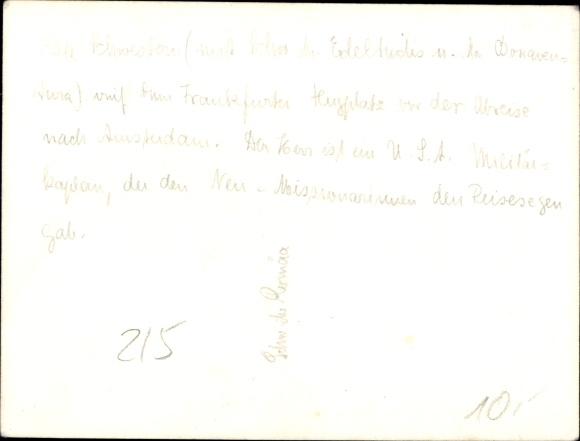 Schwestern (mit Schw. M. Edeltrudis u. M. Bonaven-
tura) auf dem Frankfurter Flugplatz vor der Abreise
nach Amsterdam. Der Herr ist ein U.S.A. Militär=
kaplan, der den Neu-Missionarinnen den Reisesegen
gab.
Schw.
215
10,-